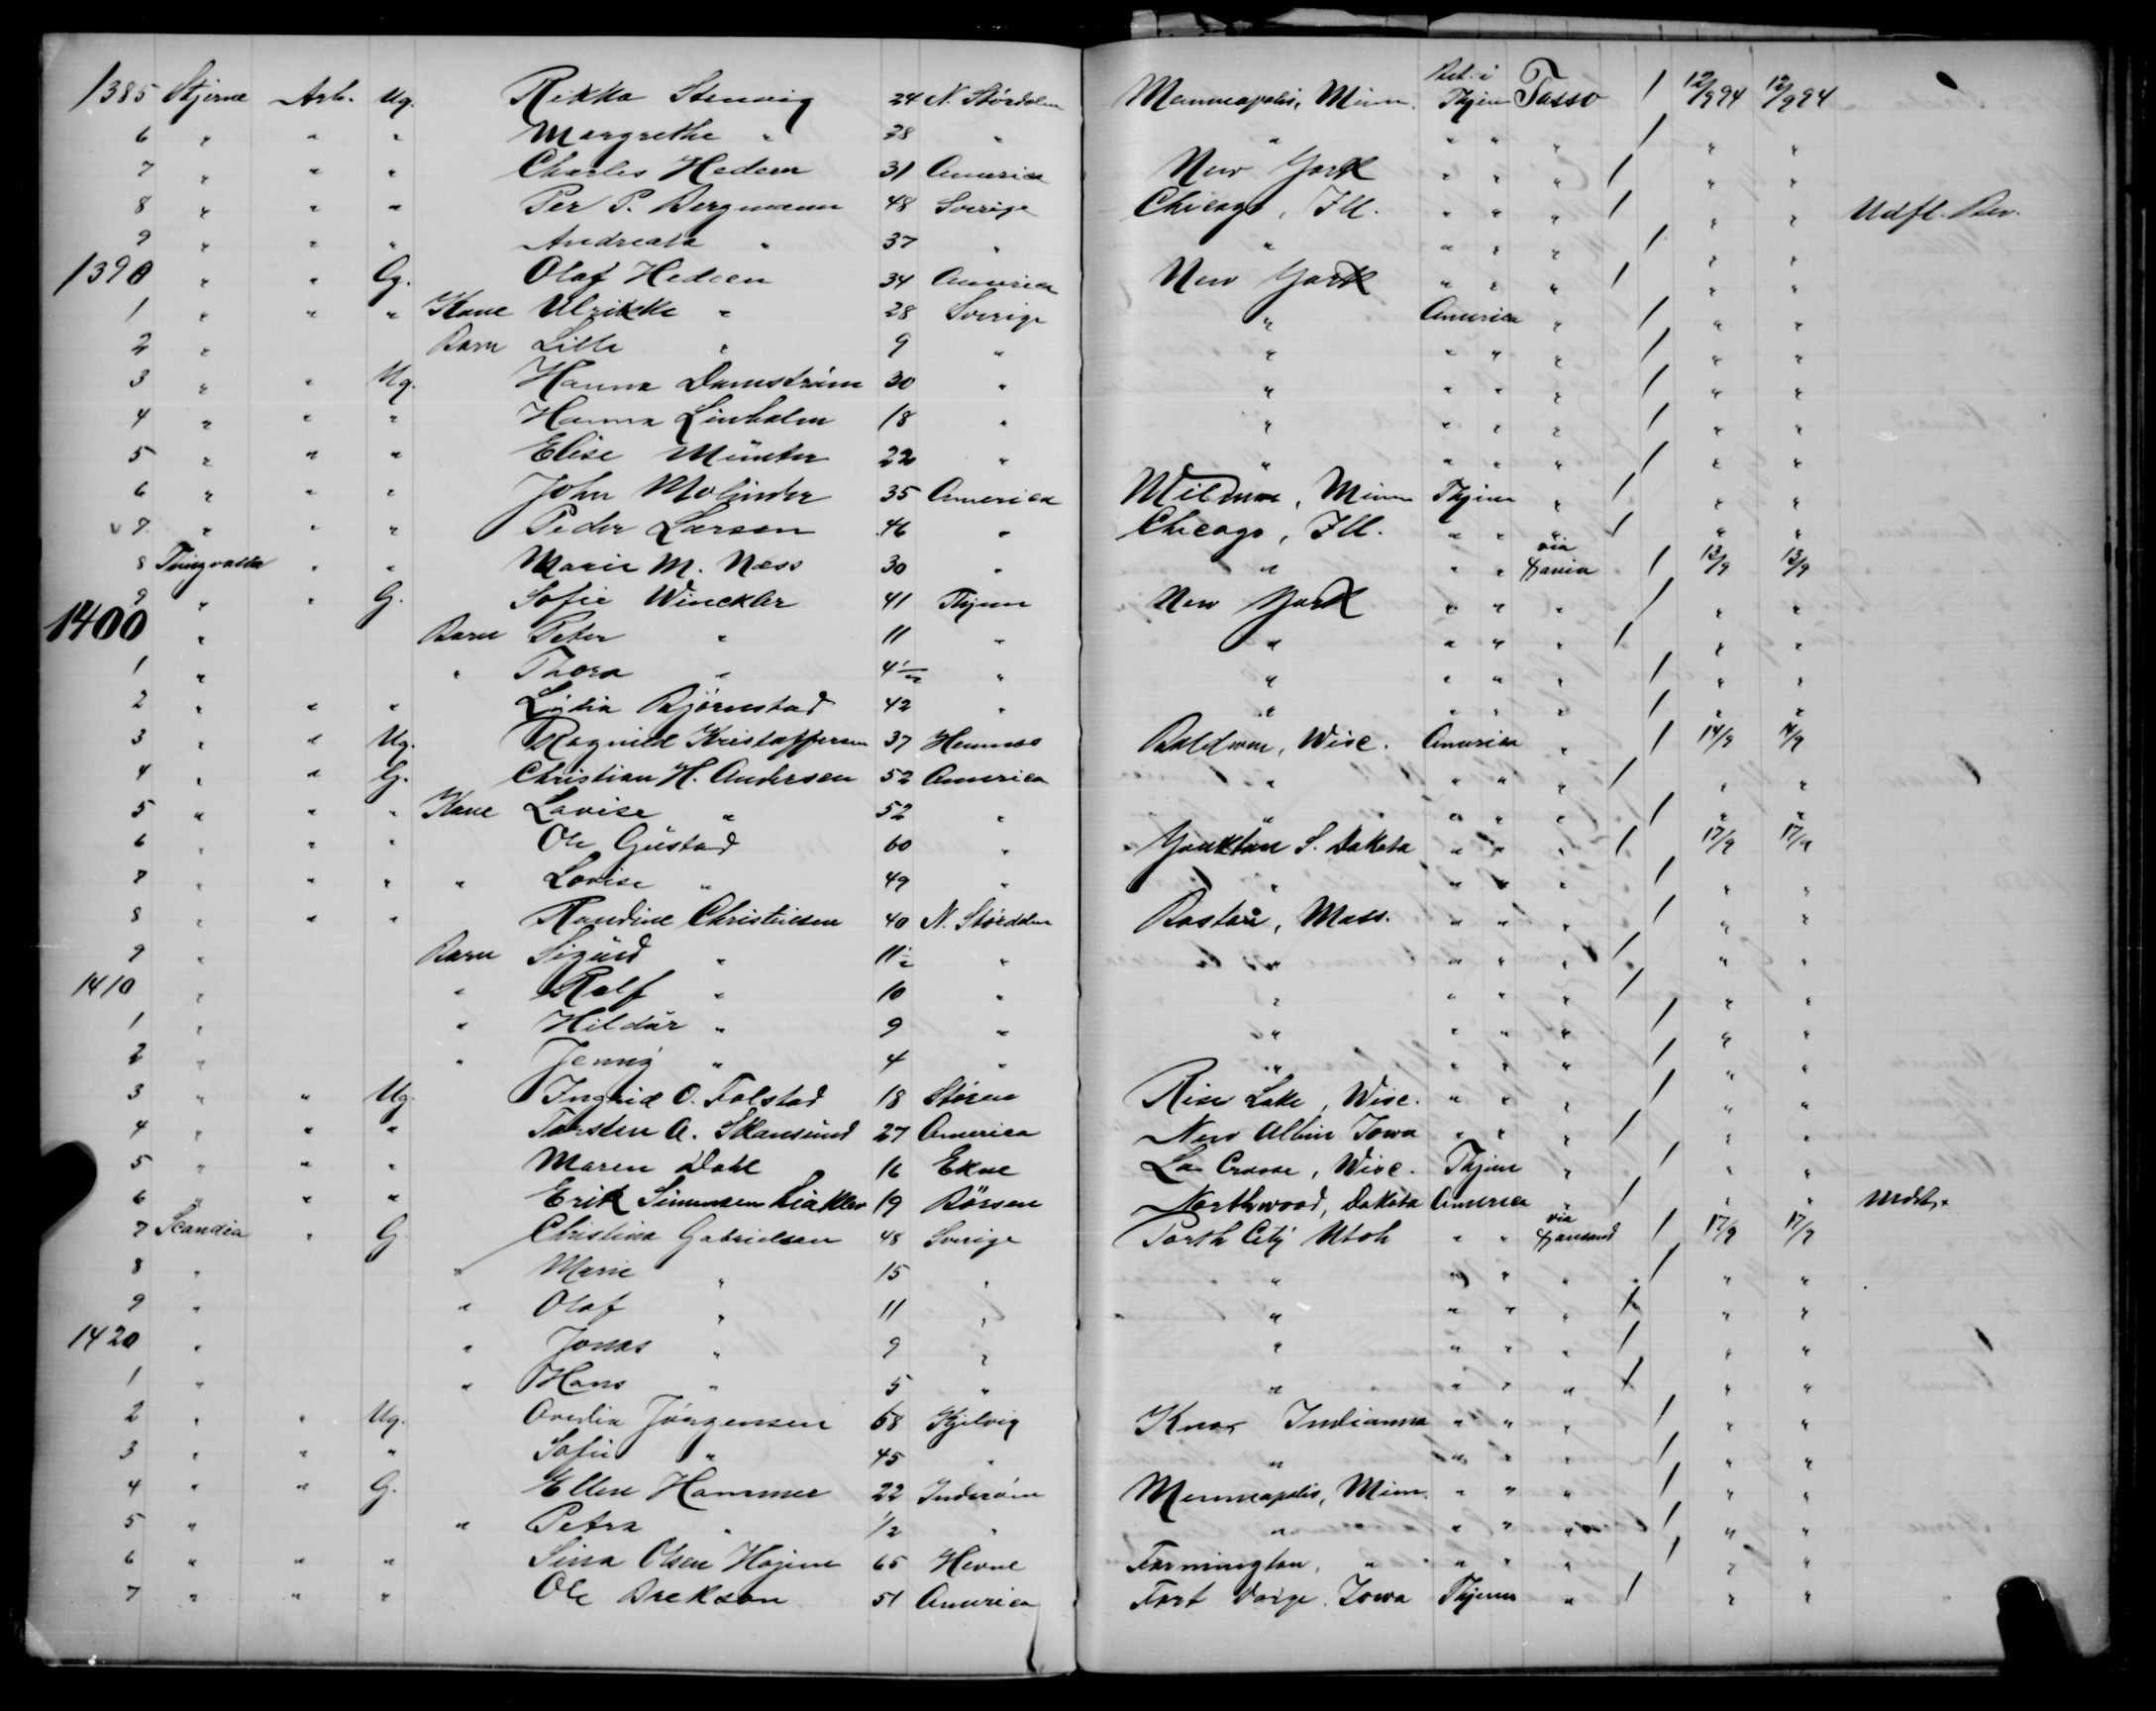 1385 Stjerne Arb. Ug. Rikka Stenvig 24 N. Stördalen Menneapolis, Minn. Bet. i Thjem Tasso / 12/9 94 12/9 94
6 " " " Margrethe " 28 " " " " " / " "
7 " " " Charles Hedeen 31 America New York " " " / " "
8 " " " Per P. Bergmann 48 Sverige Chicago, Ill. " " " / " " Udfl. Bev.
9 " " " Andreata " 37 " " " " " / " "
1390 " " G. Olaf Hedeen 34 America New York " " " / " "
1 " " " Kone Ulrikke " 28 Sverige " America " / " "
2 " Barn Lille " 9 " " " " " / " "
3 " " Ug. Hanna Damström 30 " " " " " / " "
4 " " " Hanna Linholm 18 " " " " " / " "
5 " " " Elise Münter 22 " " " " " / " "
6 " " " John Molinder 35 America Minn Thjem " / " "
7 " " " Peder Larsen 46 " Chicago, Ill. " " " / " "
8 Thingvalla " " Marie M. Næss 30 " " " " via Xania / 13/9 13/9
9 " " G. Sofie Winckler 41 Thjem New York " " " / " "
1400 " Barn Peter " 11 " " " " " / " "
1 " " Thora " 4 1/2 " " " " " / " "
2 " " " Lydia Björnstad 42 " " " " " / " "
3 " " Ug. Ragnild Kristoffersen 37 Hemnæs Baldwin, Wisc. America " / 14/9 14/9
4 " " G. Christian H. Andersen 52 America " " " " / " "
5 " " " Kone Lovise " 52 " " " " " / " "
6 " " " Ole Gustad 60 " Yanktun S. Dakota " " " / 17/9 17/9
7 " " " " Lovise " 49 " " " " " / " "
8 " " " Randine Christensen 40 N. Stördalen Boston, Mass. " " " / " "
9 " Barn Sigurd " 11 1/2 " " " " " / " "
1410 " " Rolf " 10 " " " " " / " "
1 " " Hildur " 9 " " " " " / " "
2 " " Jenny " 4 " " " " " / " "
3 " " Ug. Ingrid O. Folstad 18 Støren Rise Lake, Wisc. " " " / " "
4 " " " Torsten A. Skansund 27 America New Albin Iowa " " " / " "
5 " " " Maren Dahl 16 Ekne La Crosse, Wisc. Thjem " / " "
6 " " " Erik Simonsen Liaklev 19 Börsen Northwood, Dakota America " / " "
7 Scandia " G Christina Gabrielsen 48 Sverige Parth City Utoh " " via Xansand / 17/9 17/9
8 " " Marie " 15 " " " " " / " "
9 " " Olaf " 11 " " " " " / " "
1420 " " Jonas " 9 " " " " " / " "
1 " " Hans " 5 " " " " " / " "
2 " " Ug. Ovedia Jörgensen 68 Kjelvig Knox Indianna " " " / " "
3 " " " Sofie " 45 " " " " " / " "
4 " " G. Ellen Hammer 22 Inderöen Menneapolis, Minn. " " " / " "
5 " " Petra " 1/2 " " " " " / " "
6 " " " Sina Olsen Hojem 65 Hevne Farmington, " " " " / " "
7 " " " Ole Brekson 51 America Fort Dorge. Iowa Thjem " / " "